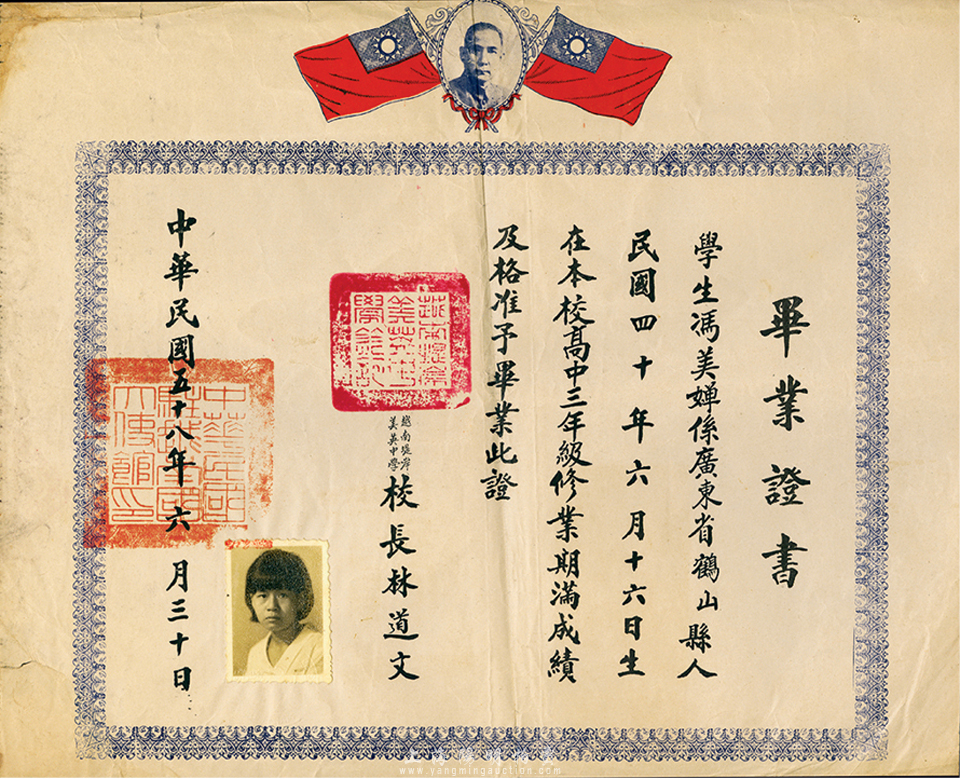 畢業證書
學生馮美嬋係廣東省鶴山縣人
民國四十年六月十六日生
在本校高中三年級修業期滿成績
及格准予畢業此證
越南堤岸
義英中學
校長林道文
中華民國五十八年六月三十日
www.yangmingauction.com